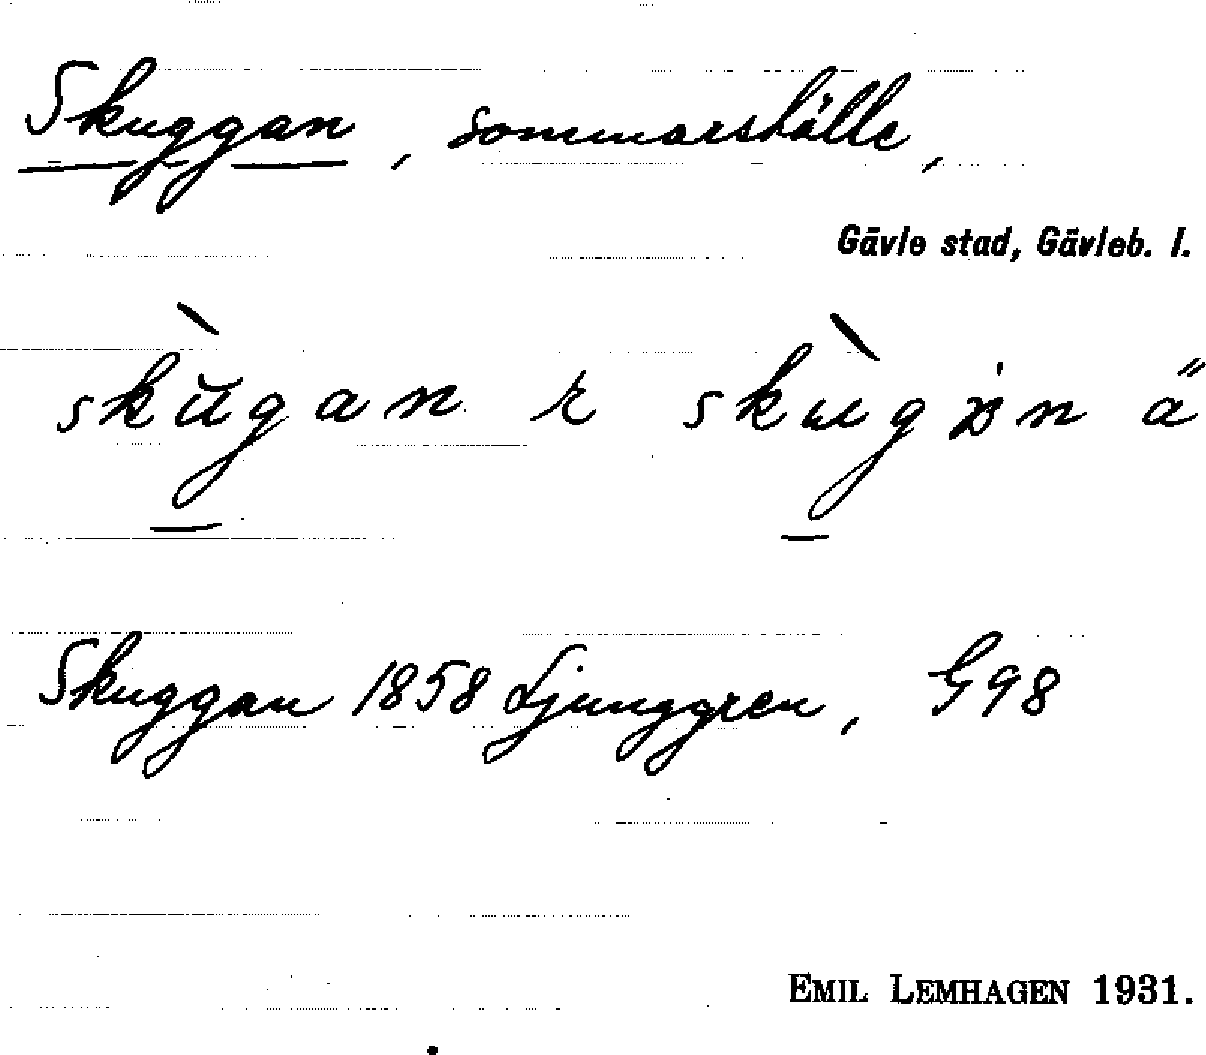 Skuggan, sommarställe,
Gävle stad, Gävleb. l.
skŭgan r skugən ä
Skuggan 1858 Ljunggren, G98
EMIL LEMHAGEN 1931.